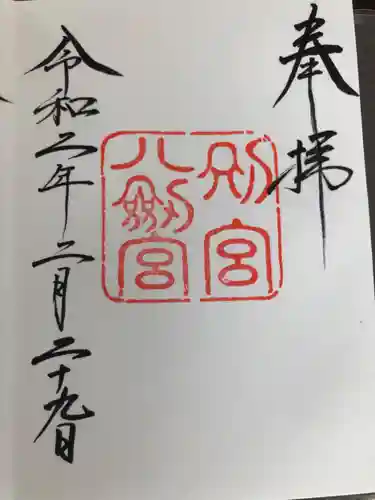 奉拝
別宮
八剱宮
令和二年二月二十九日